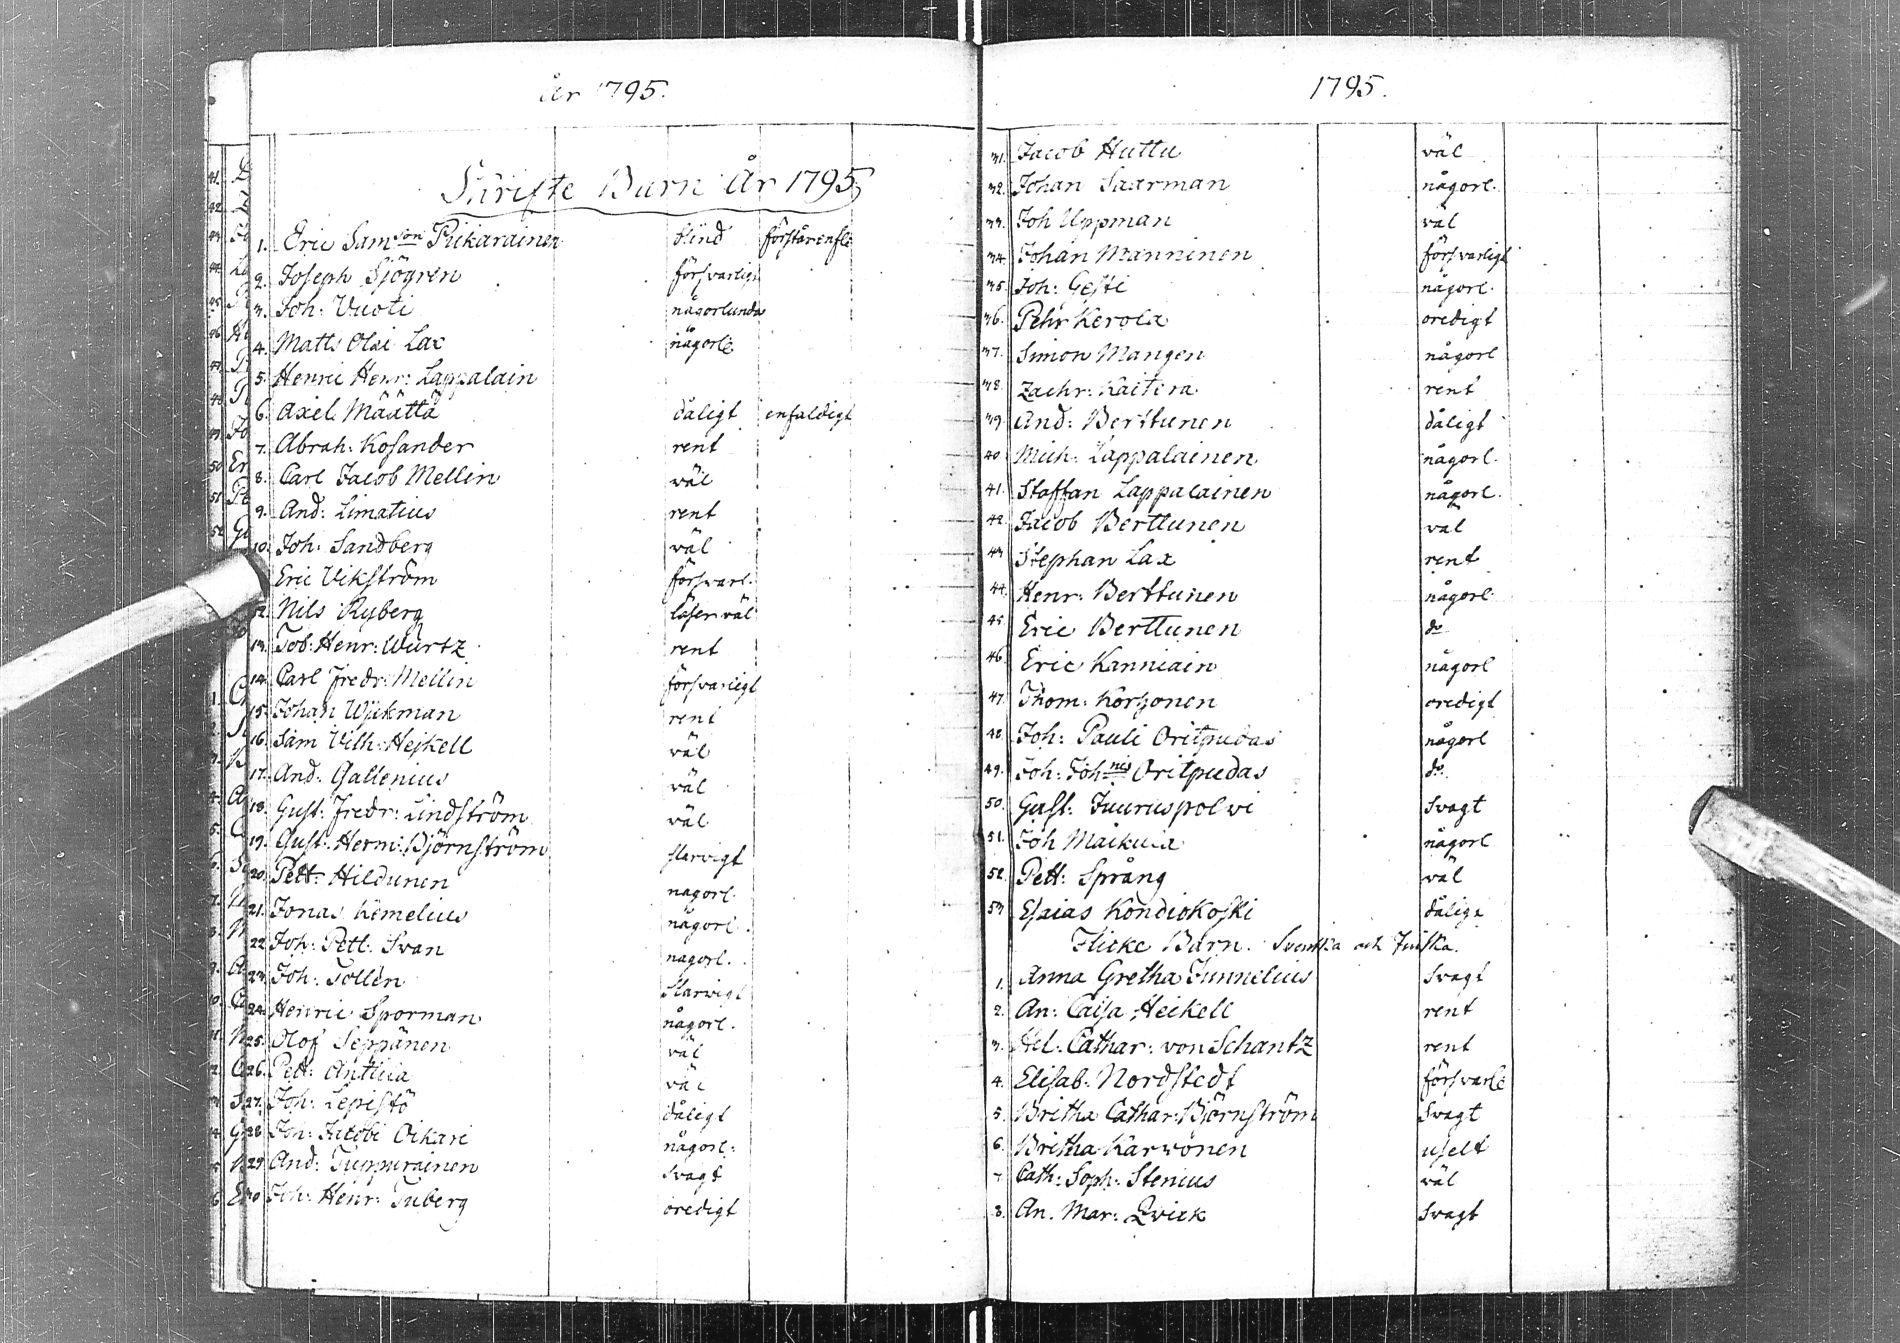 år 1795.
Skrifte Barn År 1795
1. Eric Samson Pukarainen blind förstår enfl
2. Joseph Sjögren försvarligt
3. Joh: Vuoti någorlunda
4. Matts Olai Lax någorl
5. Henric Henr: Lappalain
6. Axel Määttä dåligt enfaldigt
7. Abrah: Kosander rent
8. Carl Jacob Mellin väl
9. And: Limatius rent
10. Joh: Sandberg väl
Eric Vikström försvarl.
12. Nils Ryberg läser väl
13. Tob: Henr: Würtz rent
14. Carl Fredr: Mellin försvarligt
15. Johan Wijkman rent
16. Sam Vilh: Hejkell väl
17. And: Gallenius väl
18. Gust: Fredr: Lindström väl
19. Gust: Herm: Björnström slarvigt
20. Pett: Hildunen någorl.
21. Jonas Kemelius någorl.
22. Joh: Pett: Svan någorl.
23. Joh: Tollén slarvigt
24. Henric Sporman någorl.
25. Olof Seppänen väl
26. Pett: Anttila väl
27. Joh: Lepistö dåligt
28. Joh: Jacobi Oikari någorl:
29. And: Tuppurainen svagt
30 Joh: Henr: Tuberg oredigt
1795.
31. Jacob Huttu väl
32. Johan Saarman någorl.
33. Joh Uppman väl
34. Johan Manninen försvarligt
35. Joh: Gesti någorl.
36. Pehr Kerola oredigt
37. Simon Mangen någorl
38. Zachr: Kaitera rent
39. And: Berttunen dåligt
40. Mich: Lappalainen någorl.
41. Staffan Lappalainen någorl.
42. Jacob Berttunen väl
43 Stephan Lax rent
44. Henr: Berttunen någorl.
45. Eric Berttunen do
46. Eric Kanniain någorl
47. Thom: Korhonen oredigt
48. Joh: Pauli Oritpudas någorl
49. Joh: Johnis Oritpudas do.
50. Gust: Juuruspolvi svagt
51. Joh Maikula någorl
52. Pett: Språng väl
53. Esaias Kondiokoski dåligt
Flicke Barn. Svenska och Finska.
1. Anna Gretha Tunnelius svagt
2. An: Caisa Heikell rent
3. Hel: Cathar: von Schantz rent
4. Elisab: Nordstedt försvarl
5. Britha Cathar: Björnström svagt
6. Britha Karvonen uselt
7 Cath: Soph: Stenius väl
8. An. Mar: Qvick svagt